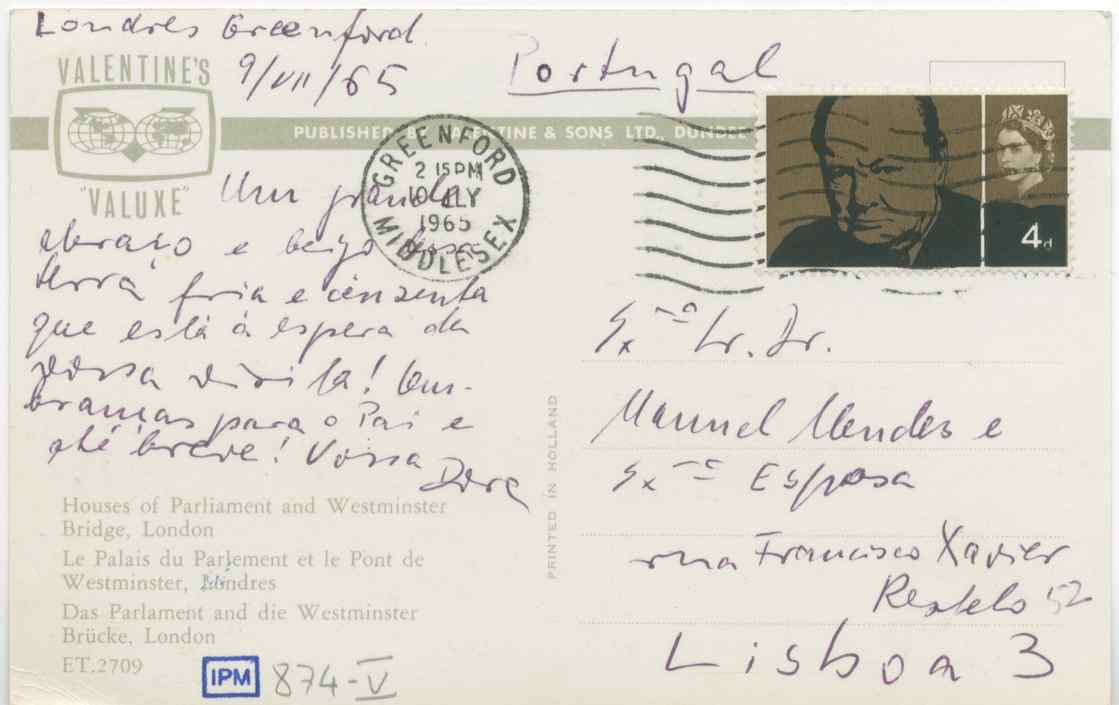 Londres Greenford.
9/VII/65
Portugal
VALENTINE'S
"VALUXE"
PUBLISHED BY VALENTINE & SONS LTD., DUNDEE
GREENFORD
2 15 PM
10 JLY
1965
MIDDLESEX
4d
Um grande
abraço e beijo
terra fria e cinzenta
que está à espera da
vossa visita! Lem-
branças para o Pai e
até breve! Vossa
Dora
Exmo Sr. Dr.
Manuel Mendes e
Exma Esposa
rua Francisco Xavier
Restelo 52
Lisboa 3
PRINTED IN HOLLAND
Houses of Parliament and Westminster
Bridge, London
Le Palais du Parlement et le Pont de
Westminster, Londres
Das Parlament and die Westminster
Brücke, London
ET.2709
IPM
874-V